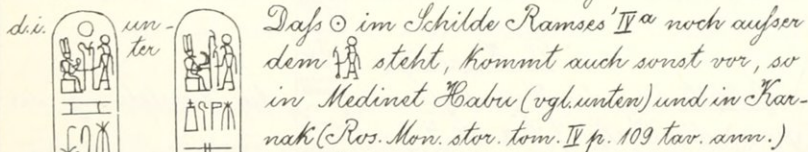 d.i. un- Daſs ☉ im Schilde Ramses' IVa noch auſser
ter dem 𓁛 steht, kommt auch sonst vor, so
in Medinet Habu (vgl. unten) und in Kar-
nak (Ros. Mon. stor. tom. IV p. 109 tav. ann.)